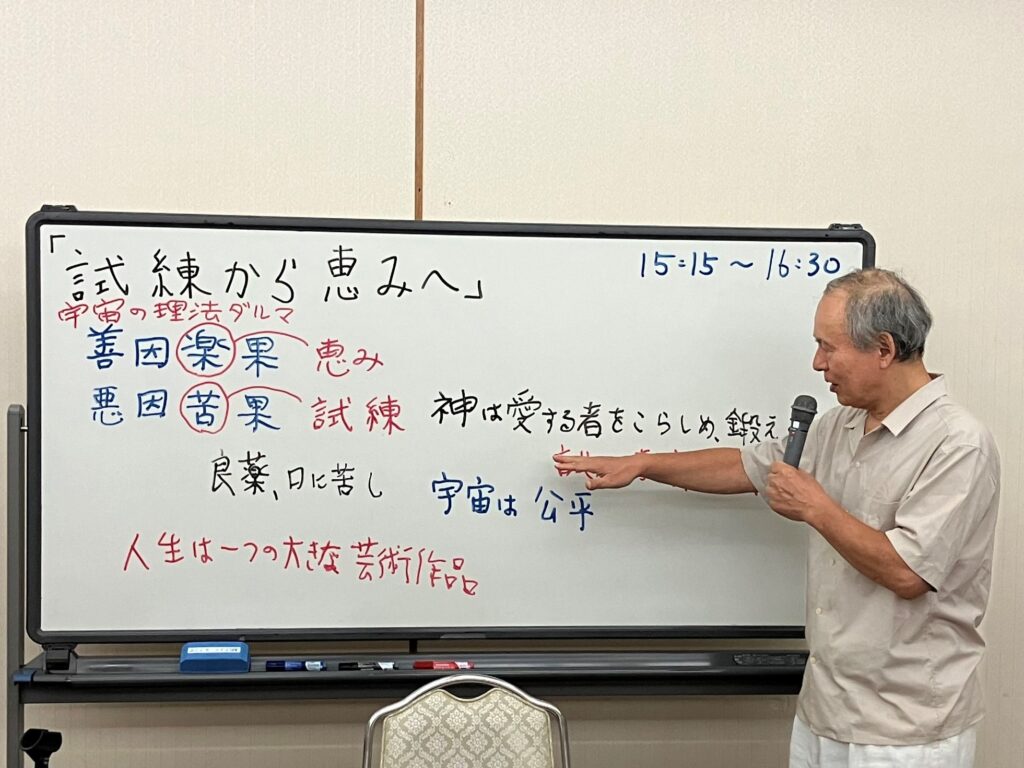 「試練から恵みへ」
15:15～16:30
宇宙の理法ダルマ
善因楽果 恵み
悪因苦果 試練
神は愛する者をこらしめ、鍛え
良薬、口に苦し
宇宙は公平
人生は一つの大きな芸術作品